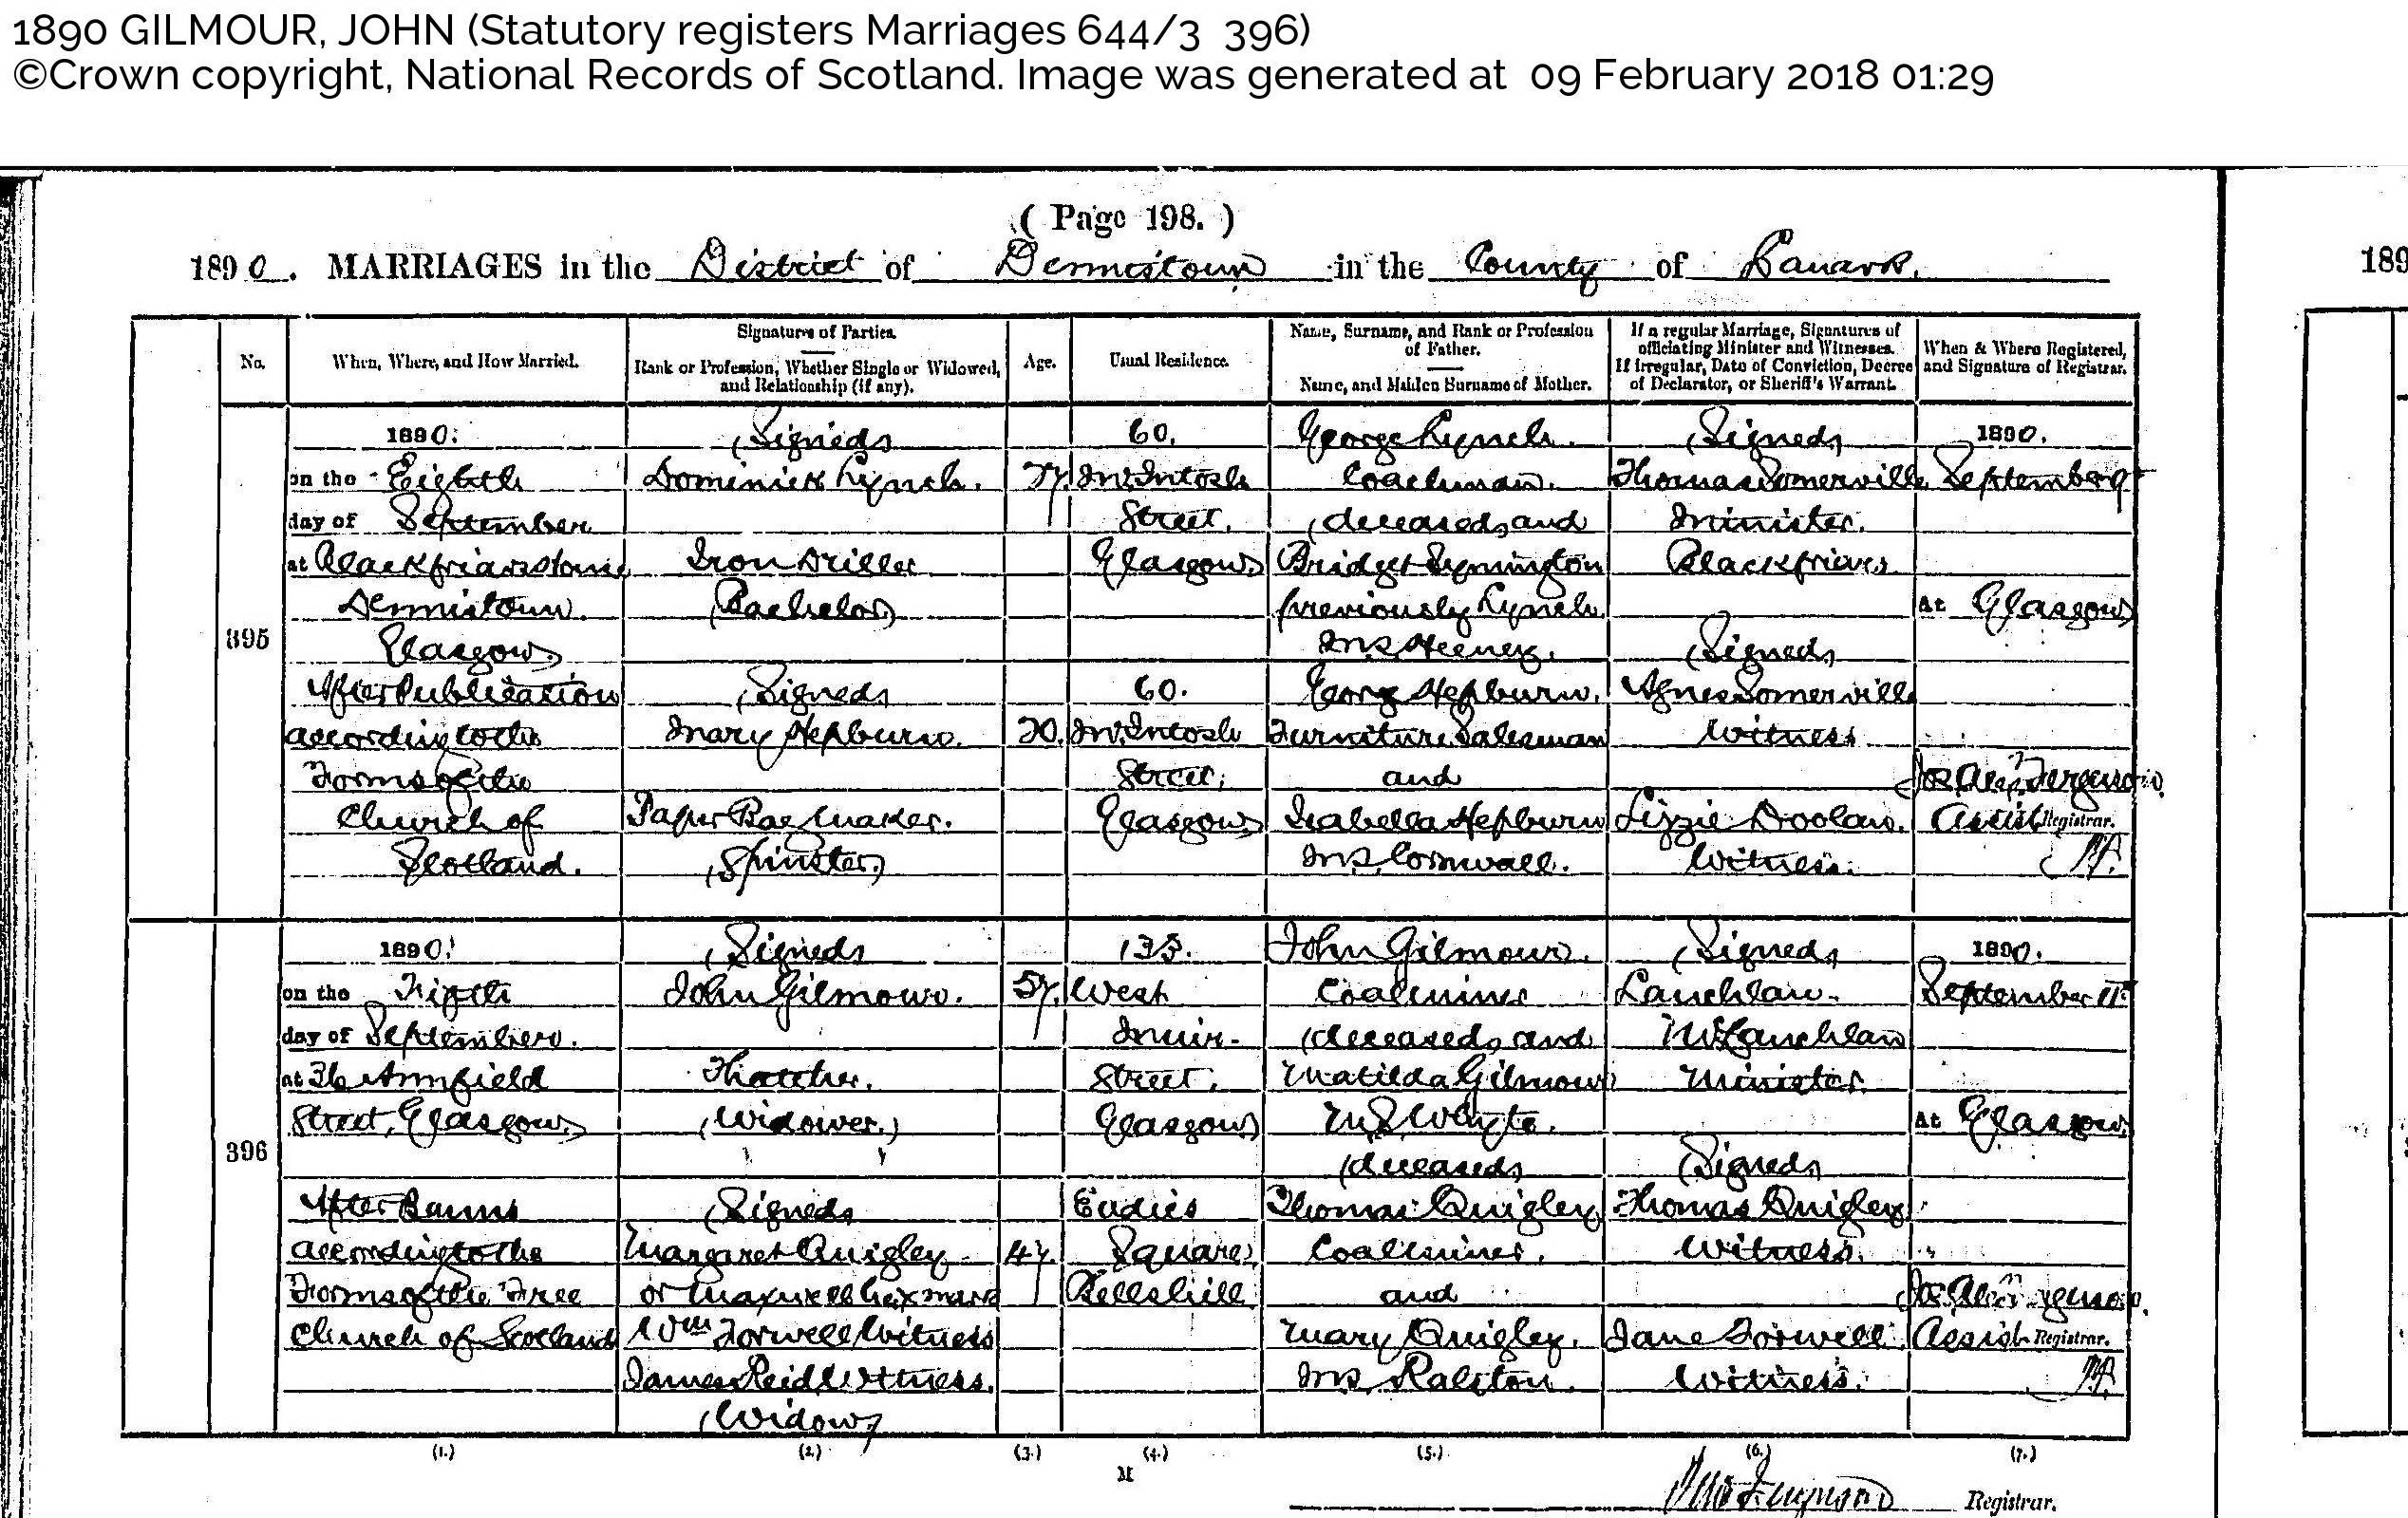 1890 GILMOUR, JOHN (Statutory registers Marriages 644/3 396)
©Crown copyright, National Records of Scotland. Image was generated at 09 February 2018 01:29
( Page 198. )
1890. MARRIAGES in the District of Dennistoun in the County of Lanark.
189
No.
When, Where, and How Married.
Signatures of Parties.
Rank or Profession, Whether Single or Widowed,
and Relationship (if any).
Age.
Usual Residence.
Name, Surname, and Rank or Profession
of Father.
Name, and Maiden Surname of Mother.
If a regular Marriage, Signatures of
officiating Minister and Witnesses.
If irregular, Date of Conviction, Decree
of Declarator, or Sheriff's Warrant.
When & Where Registered,
and Signature of Registrar.
395
1890.
on the Eighth
day of September
at Blackfriars Manse
Dennistoun
Glasgow
After Publication
according to the
Forms of the
Church of
Scotland.
(Signed)
Dominick Lynch.
Iron Driller
(Bachelor)
(Signed)
Mary Hepburn.
Paper Bag Maker.
(Spinster)
27.
20.
60.
McIntosh
Street.
Glasgow
60.
McIntosh
Street.
Glasgow
George Lynch.
Coachman.
(deceased) and
Bridget Symington
previously Lynch
M.S. Heeney.
George Hepburn.
Furniture Salesman
and
Isabella Hepburn
M.S. Cornwall.
(Signed)
Thomas Somerville
Minister.
Blackfriars
(Signed)
Agnes Somerville
Witness
Lizzie Doolan.
Witness.
1890.
September 9th
At Glasgow
Ferguson
Assist Registrar.
396
1890.
on the Fifth
day of September.
at 36 Annfield
Street, Glasgow
After Banns
according to the
Forms of the Free
Church of Scotland
(Signed)
John Gilmour.
Thatcher.
(Widower.)
(Signed)
Margaret Quigley
or Maxwell her x mark
Wm Torwell Witness
James Reid Witness.
(Widow)
57.
47.
133.
West
Muir
Street.
Glasgow
Eadies
Square
Bellshill
John Gilmour.
Coalminer
(deceased) and
Matilda Gilmour
M.S. Whyte.
(deceased)
Thomas Quigley
Coalminer.
and
Mary Quigley.
M.S. Ralston.
(Signed)
Lauchlan
McLauchlan
Minister
(Signed)
Thomas Quigley
Witness.
Jane Torwell
Witness.
1890.
September 11th
At Glasgow
Assist Registrar.
(1.) (2.) (3.) (4.) (5.) (6.) (7.)
M
Ferguson Registrar.